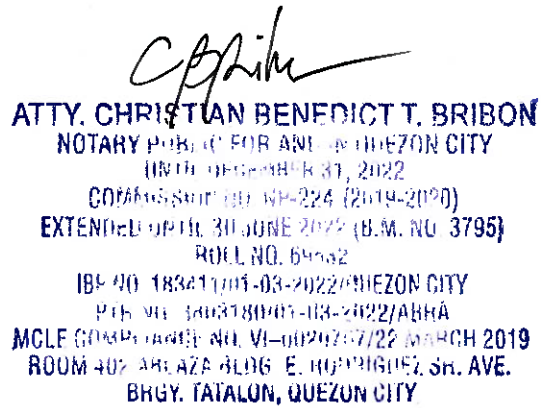 ATTY. CHRISTIAN BENEDICT T. BRIBON
NOTARY PUBLIC FOR AND IN QUEZON CITY
UNTIL DECEMBER 31, 2022
COMMISSION NO. NP-224 (2019-2020)
EXTENDED UNTIL 30 JUNE 2022 (B.M. NO. 3795)
ROLL NO.
IBP NO. 183411/01-03-2022/QUEZON CITY
PTR NO. 01-03-2022/ABRA
MCLE COMPLIANCE NO. 22 MARCH 2019
ROOM 402 ABLAZA BLDG. E. RODRIGUEZ SR. AVE.
BRGY. TATALON, QUEZON CITY